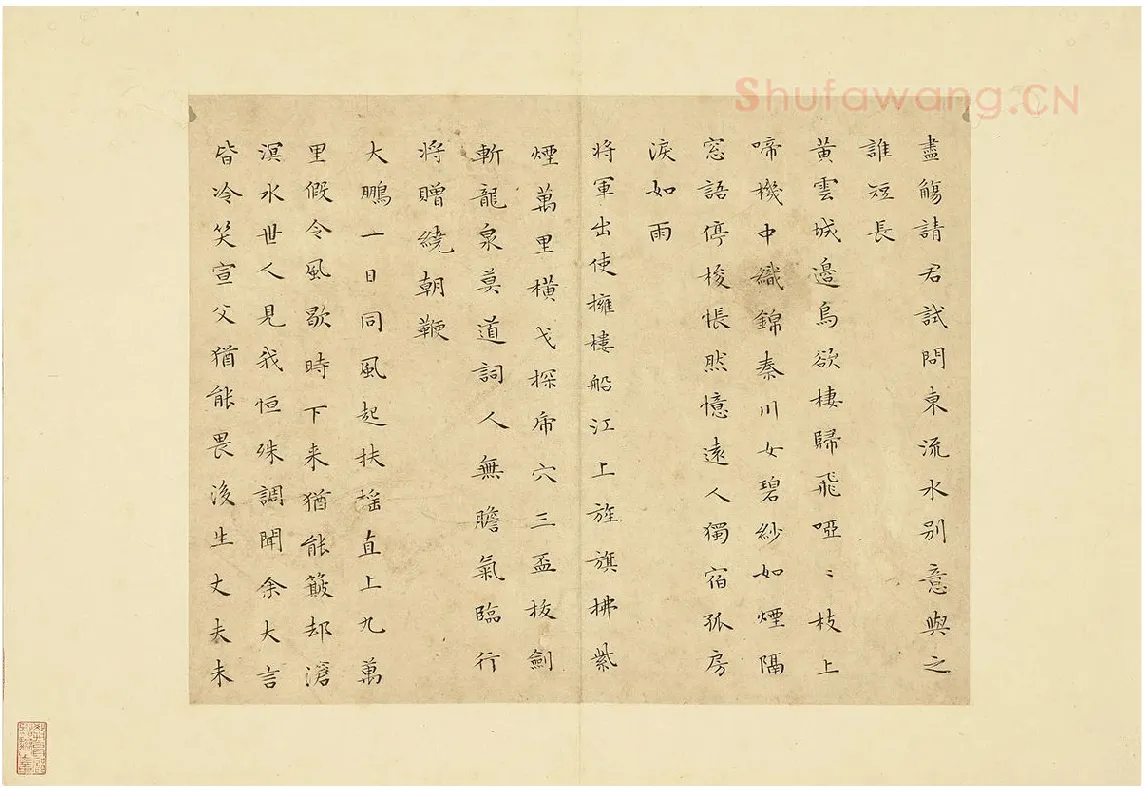 Shufawang.CN
盡觴請君試問東流水別意與之
誰短長
黃雲城邊烏欲棲歸飛啞〻枝上
啼機中織錦秦川女碧紗如煙隔
窓語停梭悵然憶遠人獨宿孤房
淚如雨
将軍出使擁樓船江上旌旗拂紫
煙萬里橫戈探虎穴三盃拔劍
斬龍泉莫道詞人無膽氣臨行
将贈繞朝鞭
大鵬一日同風起扶搖直上九萬
里假令風歇時下来猶能簸却滄
溟水世人見我恒殊調聞余大言
皆冷笑宣父猶能畏後生丈夫未